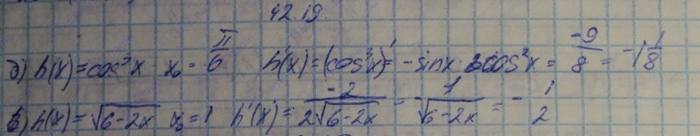 42.19.
б) h(x) = cos³x x₀ = π/6 h'(x) = (cos³x)' = -sinx·3cos²x = -9/8 = -1 1/8
в) h(x) = √(6-2x) x₀ = 1 h'(x) = -2/(2√(6-2x)) = 1/√(6-2x) = -1/2